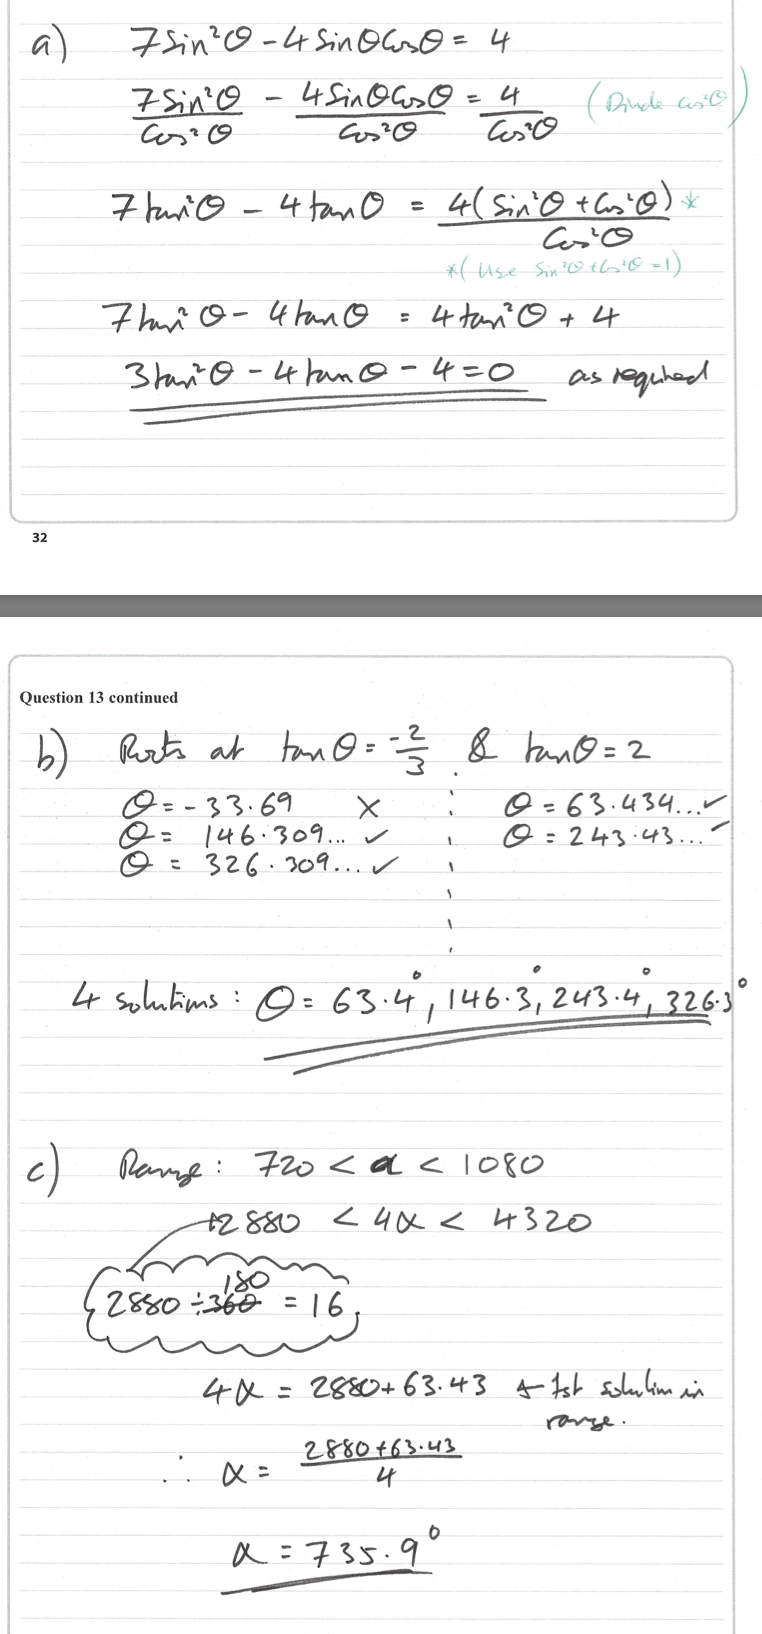 a) 7Sin²θ - 4SinθCosθ = 4
7Sin²θ/Cos²θ - 4SinθCosθ/Cos²θ = 4/Cos²θ (Divide Cos²θ)
7tan²θ - 4tanθ = 4(Sin²θ + Cos²θ)*/Cos²θ
*(Use Sin²θ+Cos²θ=1)
7tan²θ - 4tanθ = 4tan²θ + 4
3tan²θ - 4tanθ - 4 = 0 as required
32
Question 13 continued
b) Roots at tanθ = -2/3 & tanθ = 2
θ = -33.69 X θ = 63.434... ✓
θ = 146.309... ✓ θ = 243.43... ✓
θ = 326.309... ✓
4 solutions: θ = 63.4°, 146.3°, 243.4°, 326.3°
c) Range: 720 < α < 1080
2880 < 4α < 4320
180
2880 ÷ 360 = 16
4α = 2880+63.43 ← 1st solution in
range.
∴ α = 2880+63.43/4
α = 735.9°